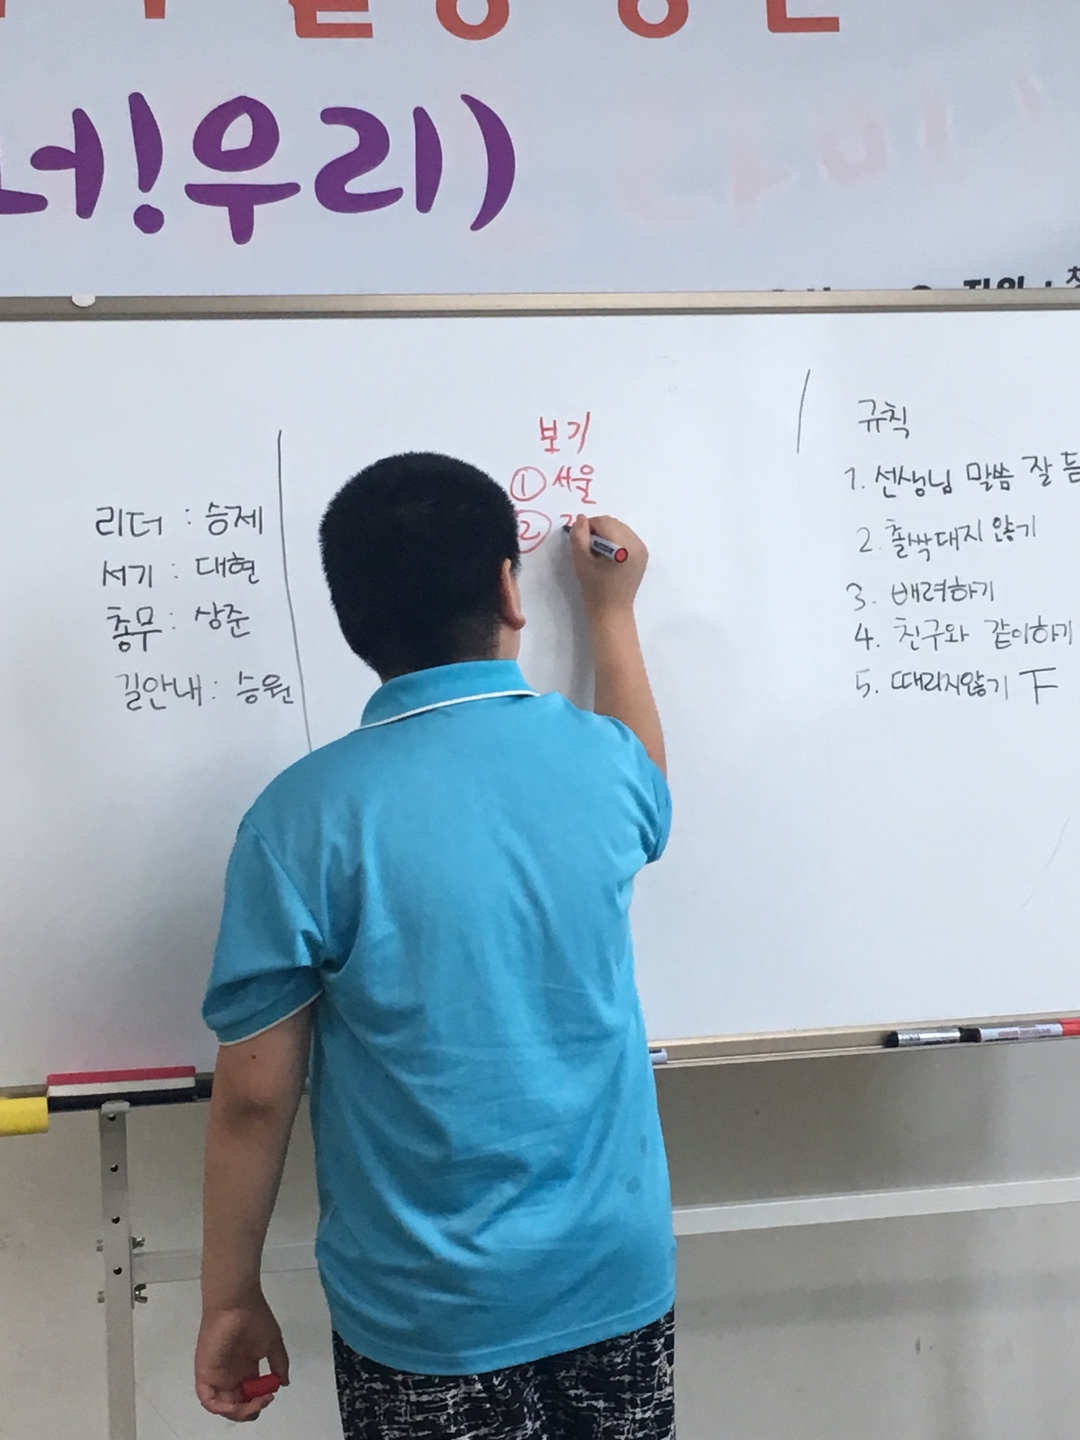 너!우리)
리더 : 승제
서기 : 대현
총무 : 상준
길안내 : 승원
보기
① 서울
②
규칙
1. 선생님 말씀 잘 듣
2. 촐싹대지 않기
3. 배려하기
4. 친구와 같이하기
5. 때리지않기 下